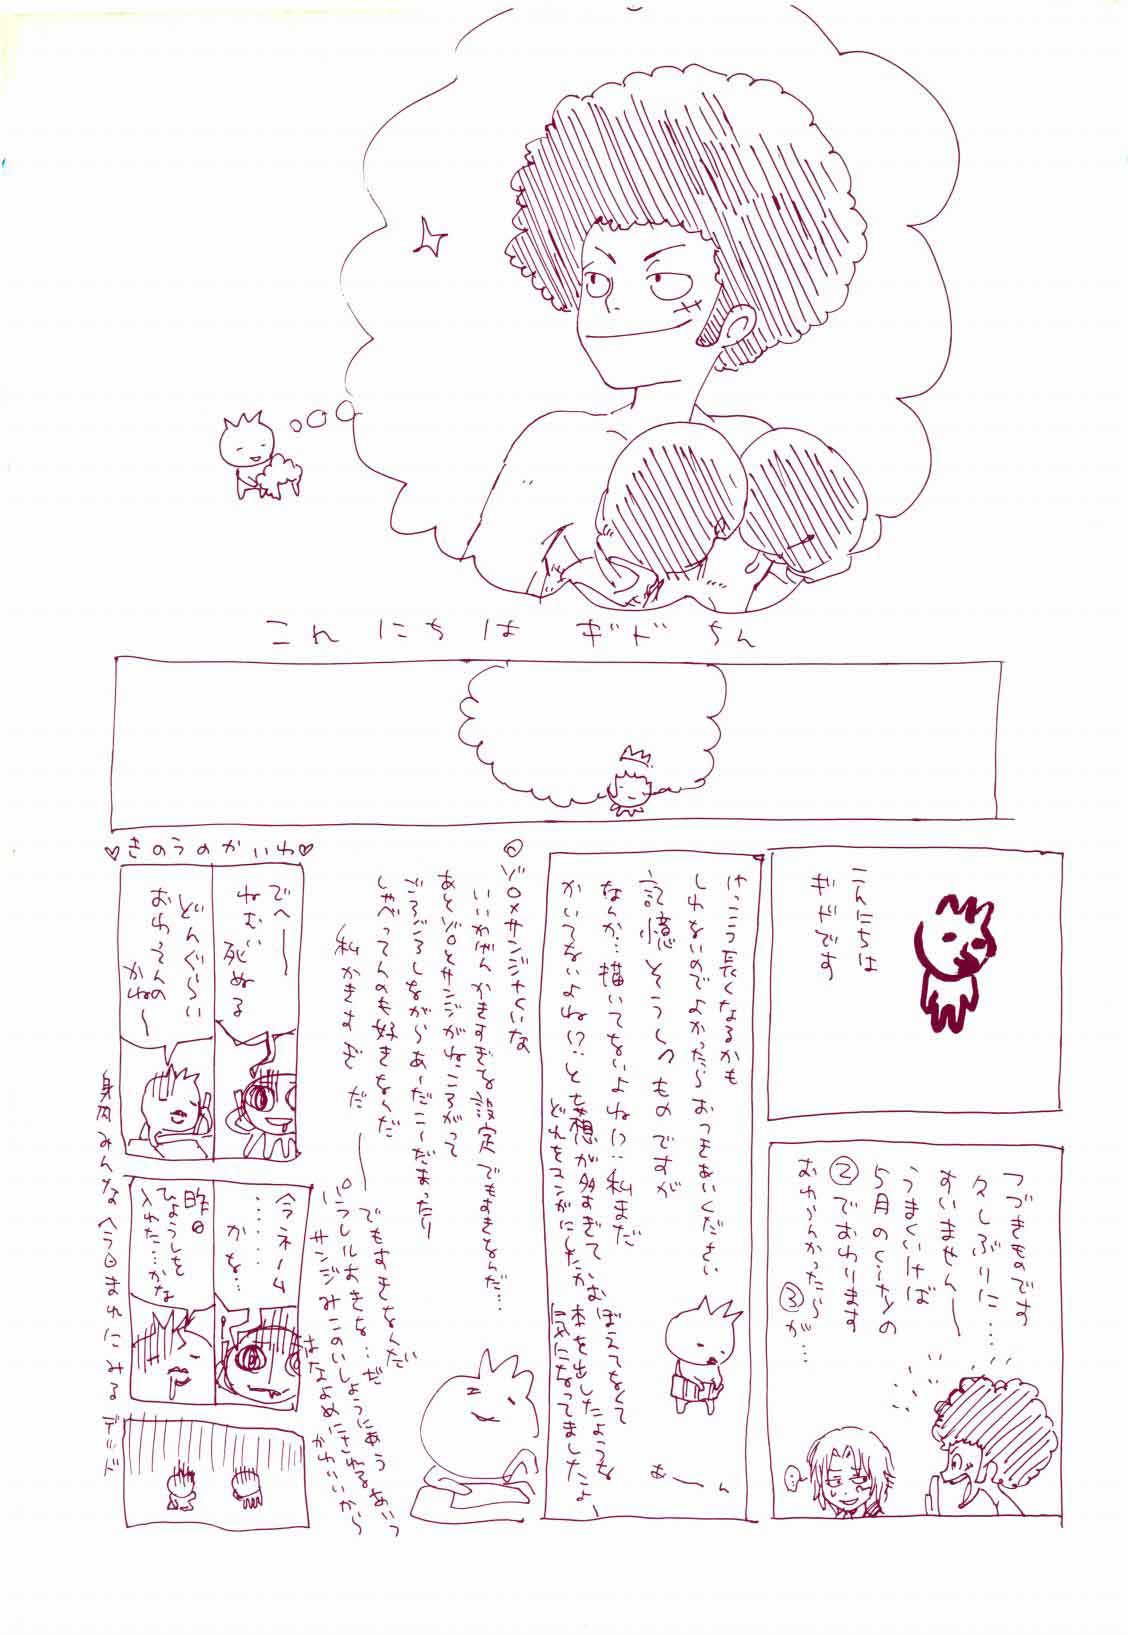 これ にちは ギドちん
こんにちは
ギドです
つづきものです
久しぶりに…
すいません〜
うまくいけば
5月のくらなの
②でおわります
おわらんかったら
③が…
けっこう長くなるかも
しれないのでよかったら おつきあいください
記憶そうしつものですが
なんか…描いてないよね!?私まだ
かいてないよね!?…と妄想が多すぎて
どれをマンガにしたかおぼえてなくて
本を出したような
気になってましたよ、
あーん
ゾロ×サンジてくいな
いいかげんかきすぎな設定でもすきなんだ…
あとゾロとサンジがねころがって
ごろごろしながらあーだこーだまったり
しゃべってんのも好きなんだ
私かきすぎだ――
でもすきなんだ
パラレルおきな…だ
サンジみこのいしょうにあう
はなよめにされるあいつ
かわいいから
♡きのうのかいわ♡
でへ〜
ねむい
死ぬる
どんぐらい
おわってんの
かね〜
今ネーム
……
かな…
昨日
ひょうしを
入れた…かな
身内みんな今日まれにみるデッド